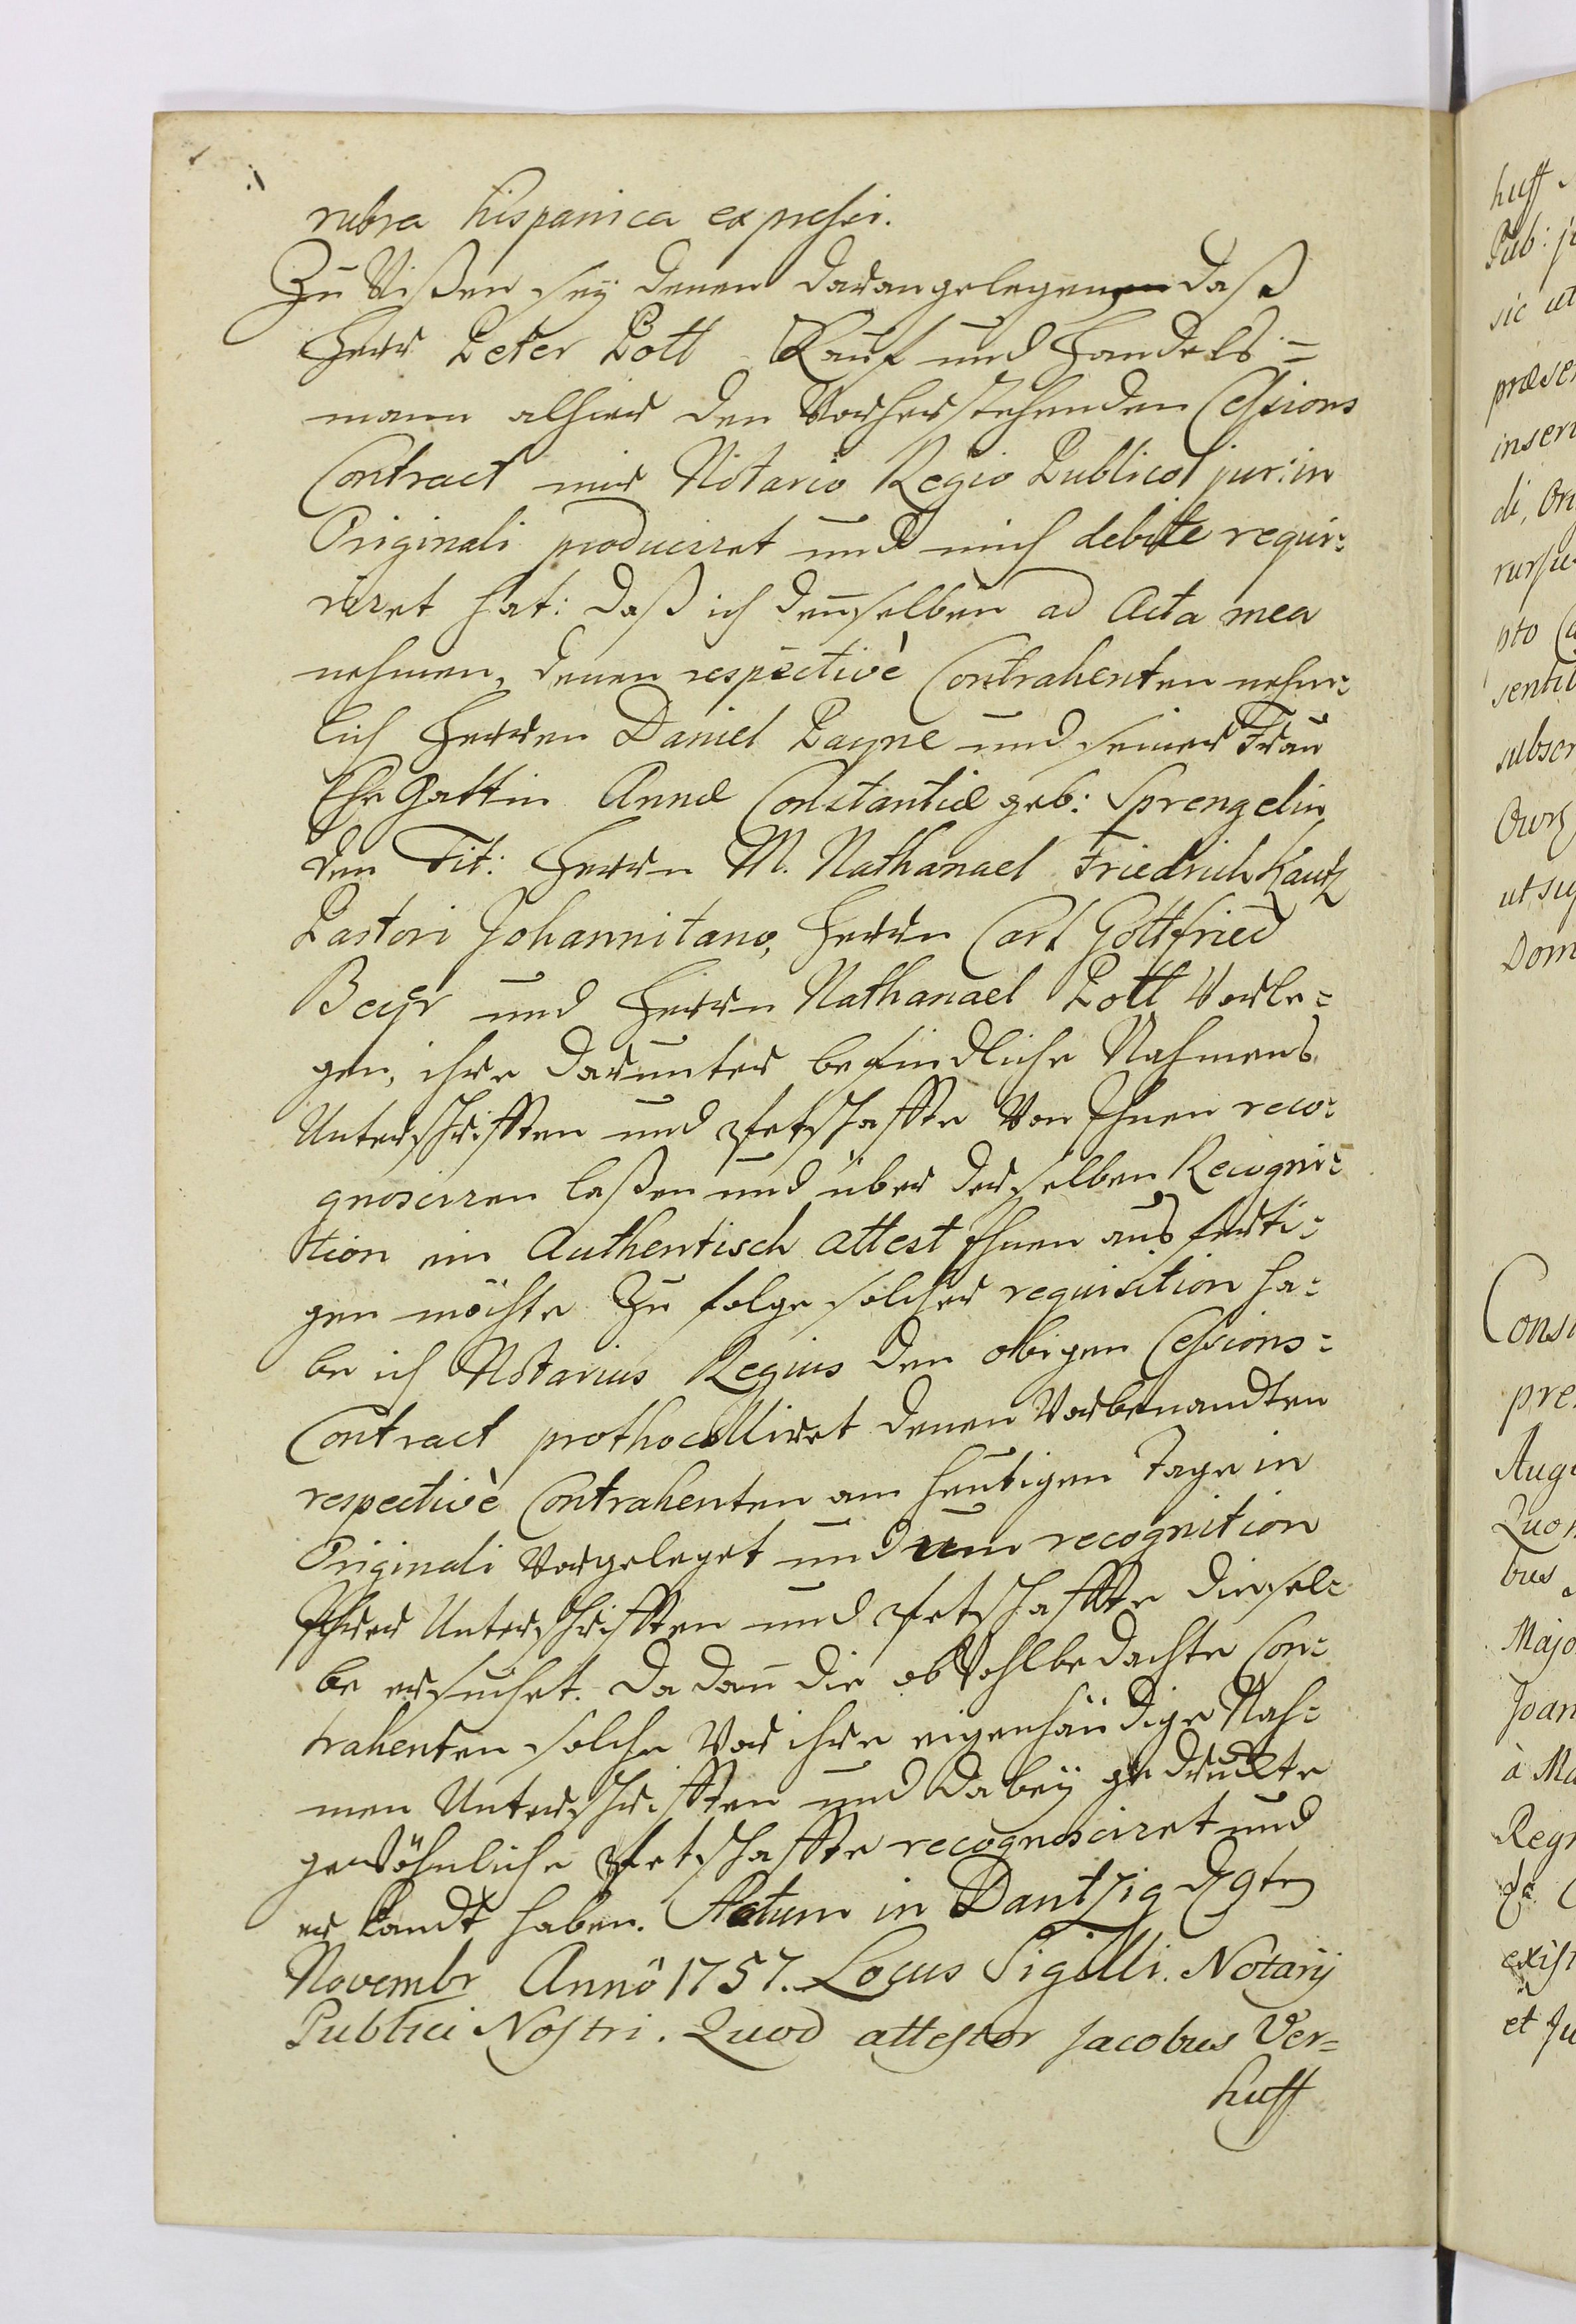 rubra hispanica expressi.
Zu Wißen sey denen darangelegenen daß
Herr Peter Pott Kauf und Handels=
mann alhier den Vorherstehenden Cessions
Contract mir Notario Regio Publico jur: in
Originali produciret und mich debite requi=
riret hat: daß ich denselben ad Acta mea
nehmen, denen respectivè Contrahenten nehm=
lich Herren Daniel Payne und seiner Frau
Ehe Gattin Annæ Constantiæ geb: Sprengelin
den Tit: Herrn M. Nathanael Friedrich Kautz
Pastori Johannitano, Herrn Carl Gottfried
Beyer und Herrn Nathanael Pott Vorle=
gen, ihre darunter befindliche Nahmens
Unterschrifften und Petschaffte Von Ihnen reco=
gnosciren laßen und über derselben Recogni=
tion ein Authentisch attest Ihnen aus ferti=
gen möchte Zu folge solcher requisition ha=
be ich Notarius Regius den obigen Cessions=
Contract prothocolliret denen Vorbenandten
respectivè Contrahenten am heutigen Tage in
Originali Vorgeleget und um recognition
Ihrer Unterschrifften und Petschaffte diesel=
be ersuchet. Da dañ die obWohlbedachte Con=
trahenten solche Vor ihre eigenhändige Nah=
men Unterschrifften und dabey gedruckte
gewöhnliche Petschaffte recognosciret und
er kandt haben. Actum in Dantzig d 9ten
Novembr Annô 1757. Locus Sigilli. Notarij
Publici Nostri. Quod attestor Jacobus Ver=
huff
huff
Pub:
sic ut
inser
di,
pto
Dom
Cons
pre
Majo
Joan
à Ma
et Ju